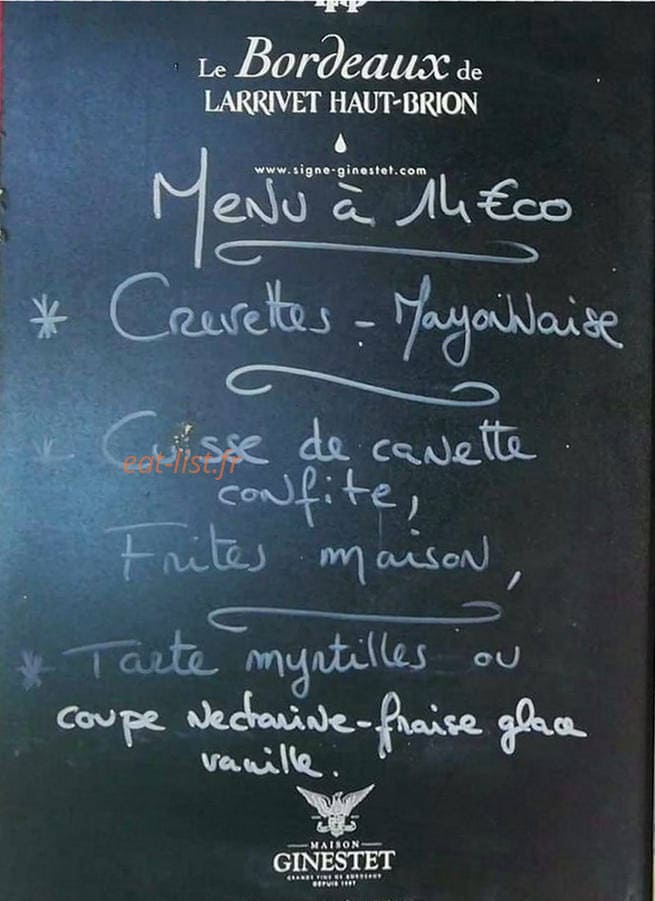 Le Bordeaux de
LARRIVET HAUT-BRION
www.signe-ginestet.com
Menu à 14€00
* Crevettes - Mayonnaise
* Cuisse de canette
eat-list.fr
confite,
Frites maison,
* Tarte myrtilles ou
coupe Nectarine-fraise glace
vanille.
MAISON
GINESTET
GRANDS VINS DE BORDEAUX
DEPUIS 1897